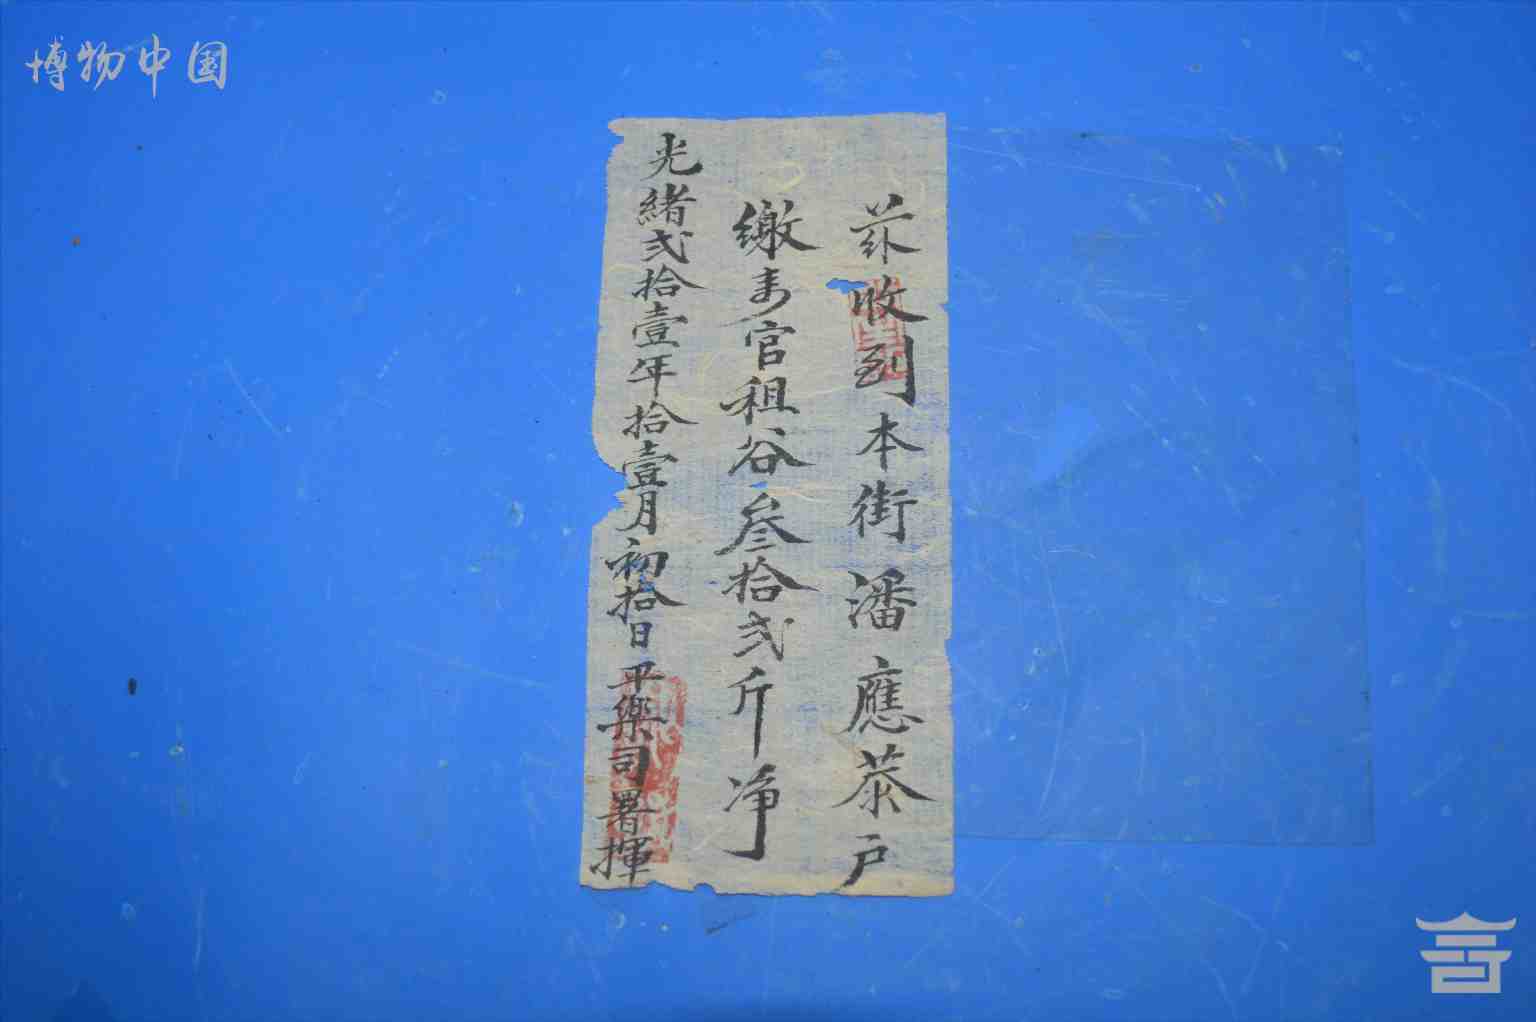 博物中国
茲收到本街潘應恭戶
繳來官租谷叁拾弍斤净
光緒弍拾壹年拾壹月初拾日平樂司署揮